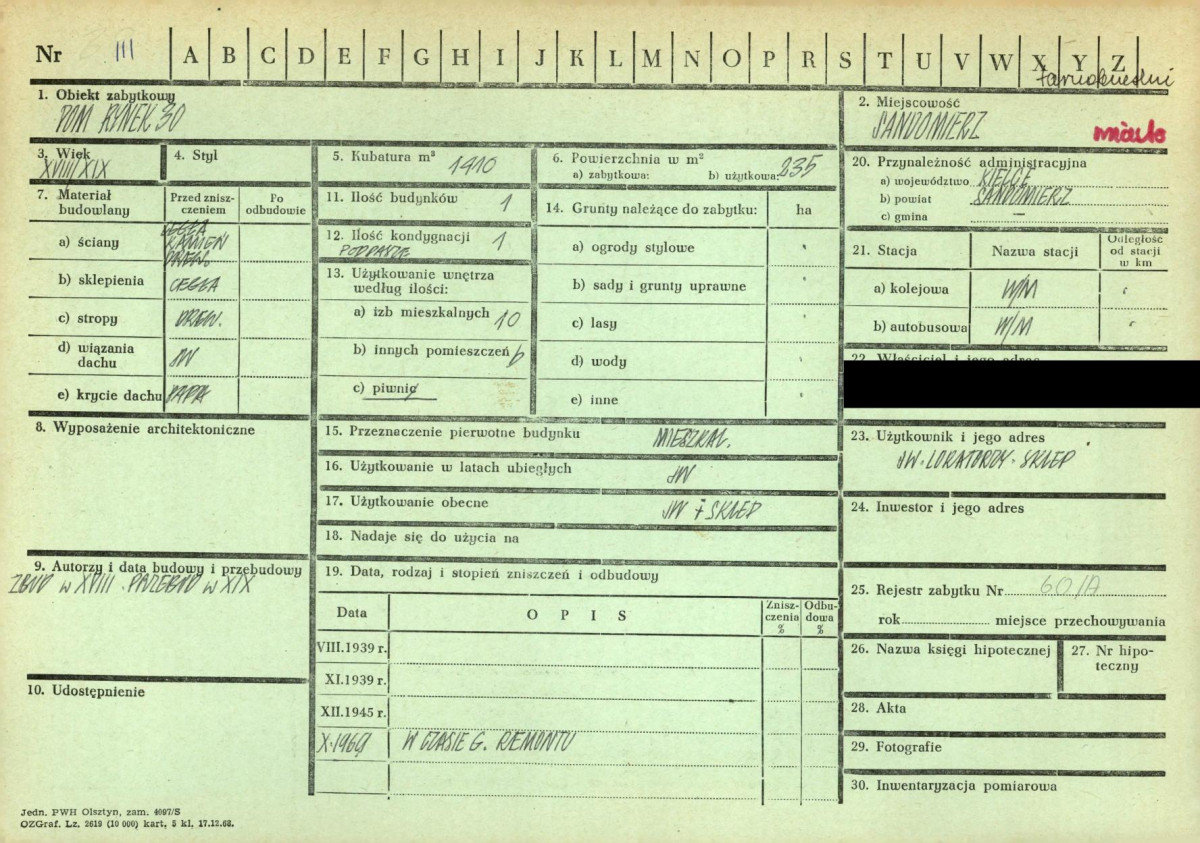 Nr III A B C D E F G H I J K L M N O P R S T U V W X Y Z
tarnobrzeski
1. Obiekt zabytkowy
DOM RYNEK 30
2. Miejscowość
SANDOMIERZ
miasto
3. Wiek
XVIII/XIX
4. Styl
5. Kubatura m³ 1910
6. Powierzchnia w m²
a) zabytkowa: b) użytkowa: 235
7. Materiał budowlany
Przed zniszczeniem
Po odbudowie
a) ściany
CEGŁA
KAMIEŃ
DREW.
b) sklepienia CEGŁA
c) stropy DREW.
d) wiązania dachu JW
e) krycie dachu PAPA
8. Wyposażenie architektoniczne
9. Autorzy i data budowy i przebudowy
ZBUD W XVIII . PRZEBUD W XIX
10. Udostępnienie
11. Ilość budynków 1
12. Ilość kondygnacji 1
PODDASZE
13. Użytkowanie wnętrza według ilości:
a) izb mieszkalnych 10
b) innych pomieszczeń 6
c) piwnic
14. Grunty należące do zabytku: ha
a) ogrody stylowe
b) sady i grunty uprawne
c) lasy
d) wody
e) inne
15. Przeznaczenie pierwotne budynku MIESZKAL.
16. Użytkowanie w latach ubiegłych JW
17. Użytkowanie obecne JW + SKLEP
18. Nadaje się do użycia na
19. Data, rodzaj i stopień zniszczeń i odbudowy
Data O P I S Zniszczenia % Odbudowa %
VIII.1939 r.
XI.1939 r.
XII.1945 r.
X.1969 W CZASIE G. REMONTU
20. Przynależność administracyjna
a) województwo KIELCE
b) powiat SANDOMIERZ
c) gmina —
21. Stacja Nazwa stacji Odległość od stacji w km
a) kolejowa W/M
b) autobusowa W/M
22. Właściciel i jego adres
23. Użytkownik i jego adres
JW. LOKATORZY. SKLEP
24. Inwestor i jego adres
25. Rejestr zabytku Nr 60/A
rok miejsce przechowywania
26. Nazwa księgi hipotecznej
27. Nr hipoteczny
28. Akta
29. Fotografie
30. Inwentaryzacja pomiarowa
Jedn. PWH Olsztyn, zam. 4097/S
OZGraf. Lz. 2619 (10 000) kart. 5 kl. 17.12.68.